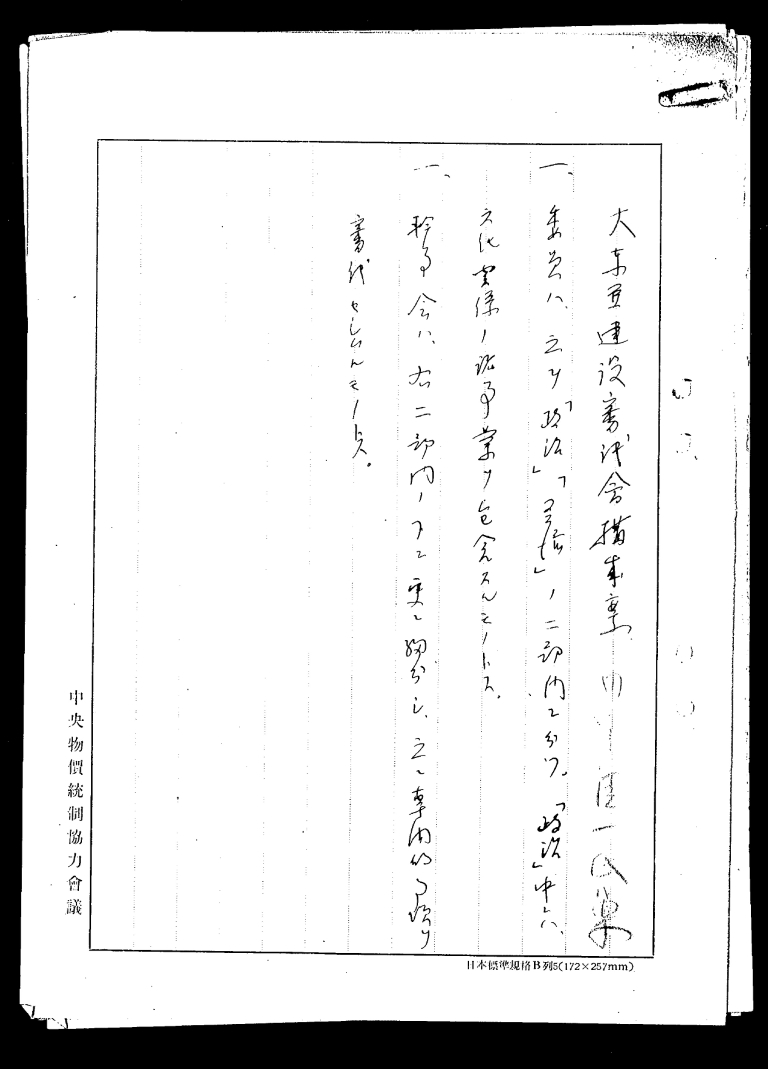 大東亜建設審議会構成案
一、委員ハ、之ヲ「政治」「経済」ノ二部門ニ分ツ。「政治」中ニハ、
文化関係ノ諸事業ヲ包含スルモノトス。
一、幹事会ハ、右二部門ノ下ニ更ニ細分シ、之ニ専門的事項ヲ
審議セシムルモノトス。
中央物價統制協力會議
日本標準規格B列5(172×257mm)